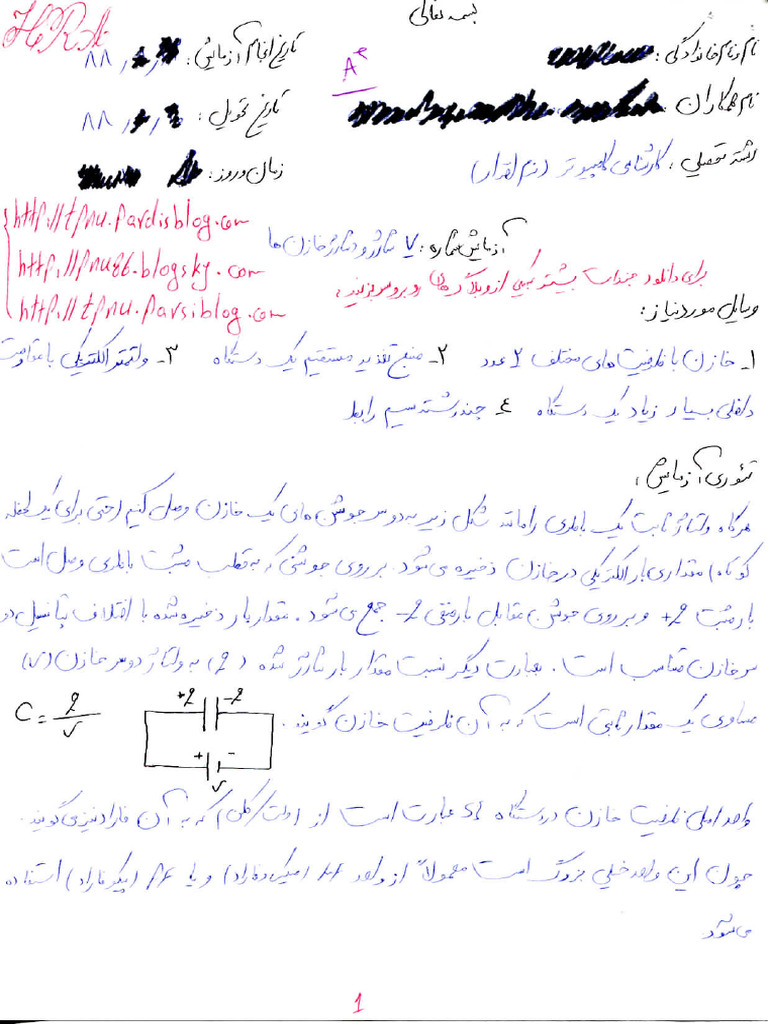 بسمه تعالی
HRA
نام و نام خانوادگی:
تاریخ انجام آزمایش: ۸۸
A+
نام همکاران
تاریخ تحویل: ۸۸
رشته تحصیلی: کارشناسی کامپیوتر (نرم افزار)
زمان و روز:
http://tpnu.pardisblog.com
http://pnu86.blogsky.com
http://tpnu.parsiblog.com
آزمایش شماره: ۷ شارژ و دشارژ خازن ها
برای دانلود جزوات بیشتر به یکی از وبلاگ های روبرو سر بزنید.
وسایل مورد نیاز:
۱- خازن با ظرفیت های مختلف ۲ عدد ۲- منبع تغذیه مستقیم یک دستگاه ۳- ولتمتر الکترونیکی با مقاومت
داخلی بسیار زیاد یک دستگاه ٤ چند رشته سیم رابط
تئوری آزمایش:
هرگاه ولتاژ ثابت یک باطری را مانند شکل زیر به دو سر جوشن های یک خازن وصل کنیم (حتی برای یک لحظه
کوتاه) مقداری بار الکتریکی در خازن ذخیره می شود. بر روی جوشنی که به قطب مثبت باطری وصل است
بار مثبت +q و بر روی جوشن مقابل بار منفی -q جمع می شود. مقدار بار ذخیره شده با اختلاف پتانسیل دو
سر خازن متناسب است. به عبارت دیگر نسبت مقدار بار شارژ شده (q) به ولتاژ دو سر خازن (v)
مساوی یک مقدار ثابتی است که به آن ظرفیت خازن گویند.
C = q/v
+q -q
+ -
v
واحد اصلی ظرفیت خازن در دستگاه SI عبارت است از (ولت/کلن) که به آن فاراد نیز می گویند.
چون این واحد خیلی بزرگ است معمولاً از واحد μF (میکروفاراد) و یا PF (پیکوفاراد) استفاده
می شود
1